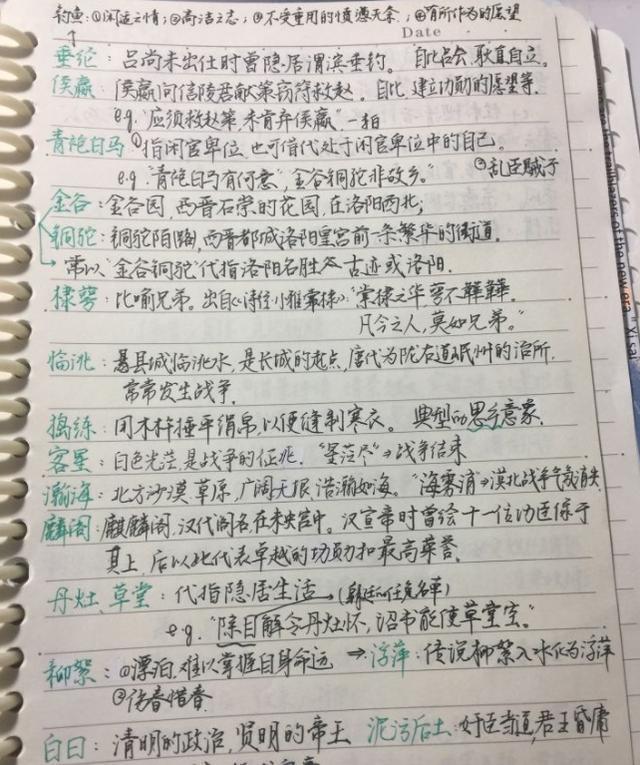 钓鱼：①闲适之情；②高洁之志；③不受重用的愤懑无奈；④有所作为的愿望
Date
垂纶：吕尚未出仕时曾隐居渭滨垂钓。自比吕尚，耿直自立。
侯嬴：侯嬴向信陵君献策窃符救赵。自比，建立功勋的愿望等.
e.g. "应须救赵策，未肯弃侯嬴".一拍
青袍白马①指闲官卑位，也可借代处于闲官卑位中的自己。
②乱臣贼子
e.g. "青袍白马有何意，金谷铜驼非故乡。"
金谷：金谷园，西晋石崇的花园，在洛阳西北；
铜驼：铜驼陌路，西晋都城洛阳皇宫前一条繁华的街道.
常以"金谷铜驼"代指洛阳名胜古迹或洛阳.
棣萼：比喻兄弟。出自《诗经·小雅·棠棣》"棠棣之华，萼不韡韡.
凡今之人，莫如兄弟。"
临洮：县城临洮水，是长城的起点，唐代为陇右道岷州的治所.
常常发生战争.
捣练：用木杵捶平绢帛，以便缝制寒衣。典型的思乡意象.
客星：白色光芒，是战争的征兆. "星芒尽"→战争结束
瀚海：北方沙漠、草原，广阔无垠，浩瀚如海。"海雾消"→漠北战争气氛消失
麟阁：麒麟阁，汉代阁名，在未央宫中。汉宣帝时曾绘十一位功臣像于
其上，后以此代表卓越的功勋和最高荣誉.
丹灶、草堂：代指隐居生活 (朝廷的任免名单)
e.g. "除目解令丹灶怀，诏书能使草堂空。"
柳絮：①漂泊，难以掌握自身命运 → 浮萍：传说柳絮入水化为浮萍
②伤春惜春
白日：清明的政治，贤明的帝王 泥污后土：奸臣当道，君王昏庸
villagers of the new era." Xi sai